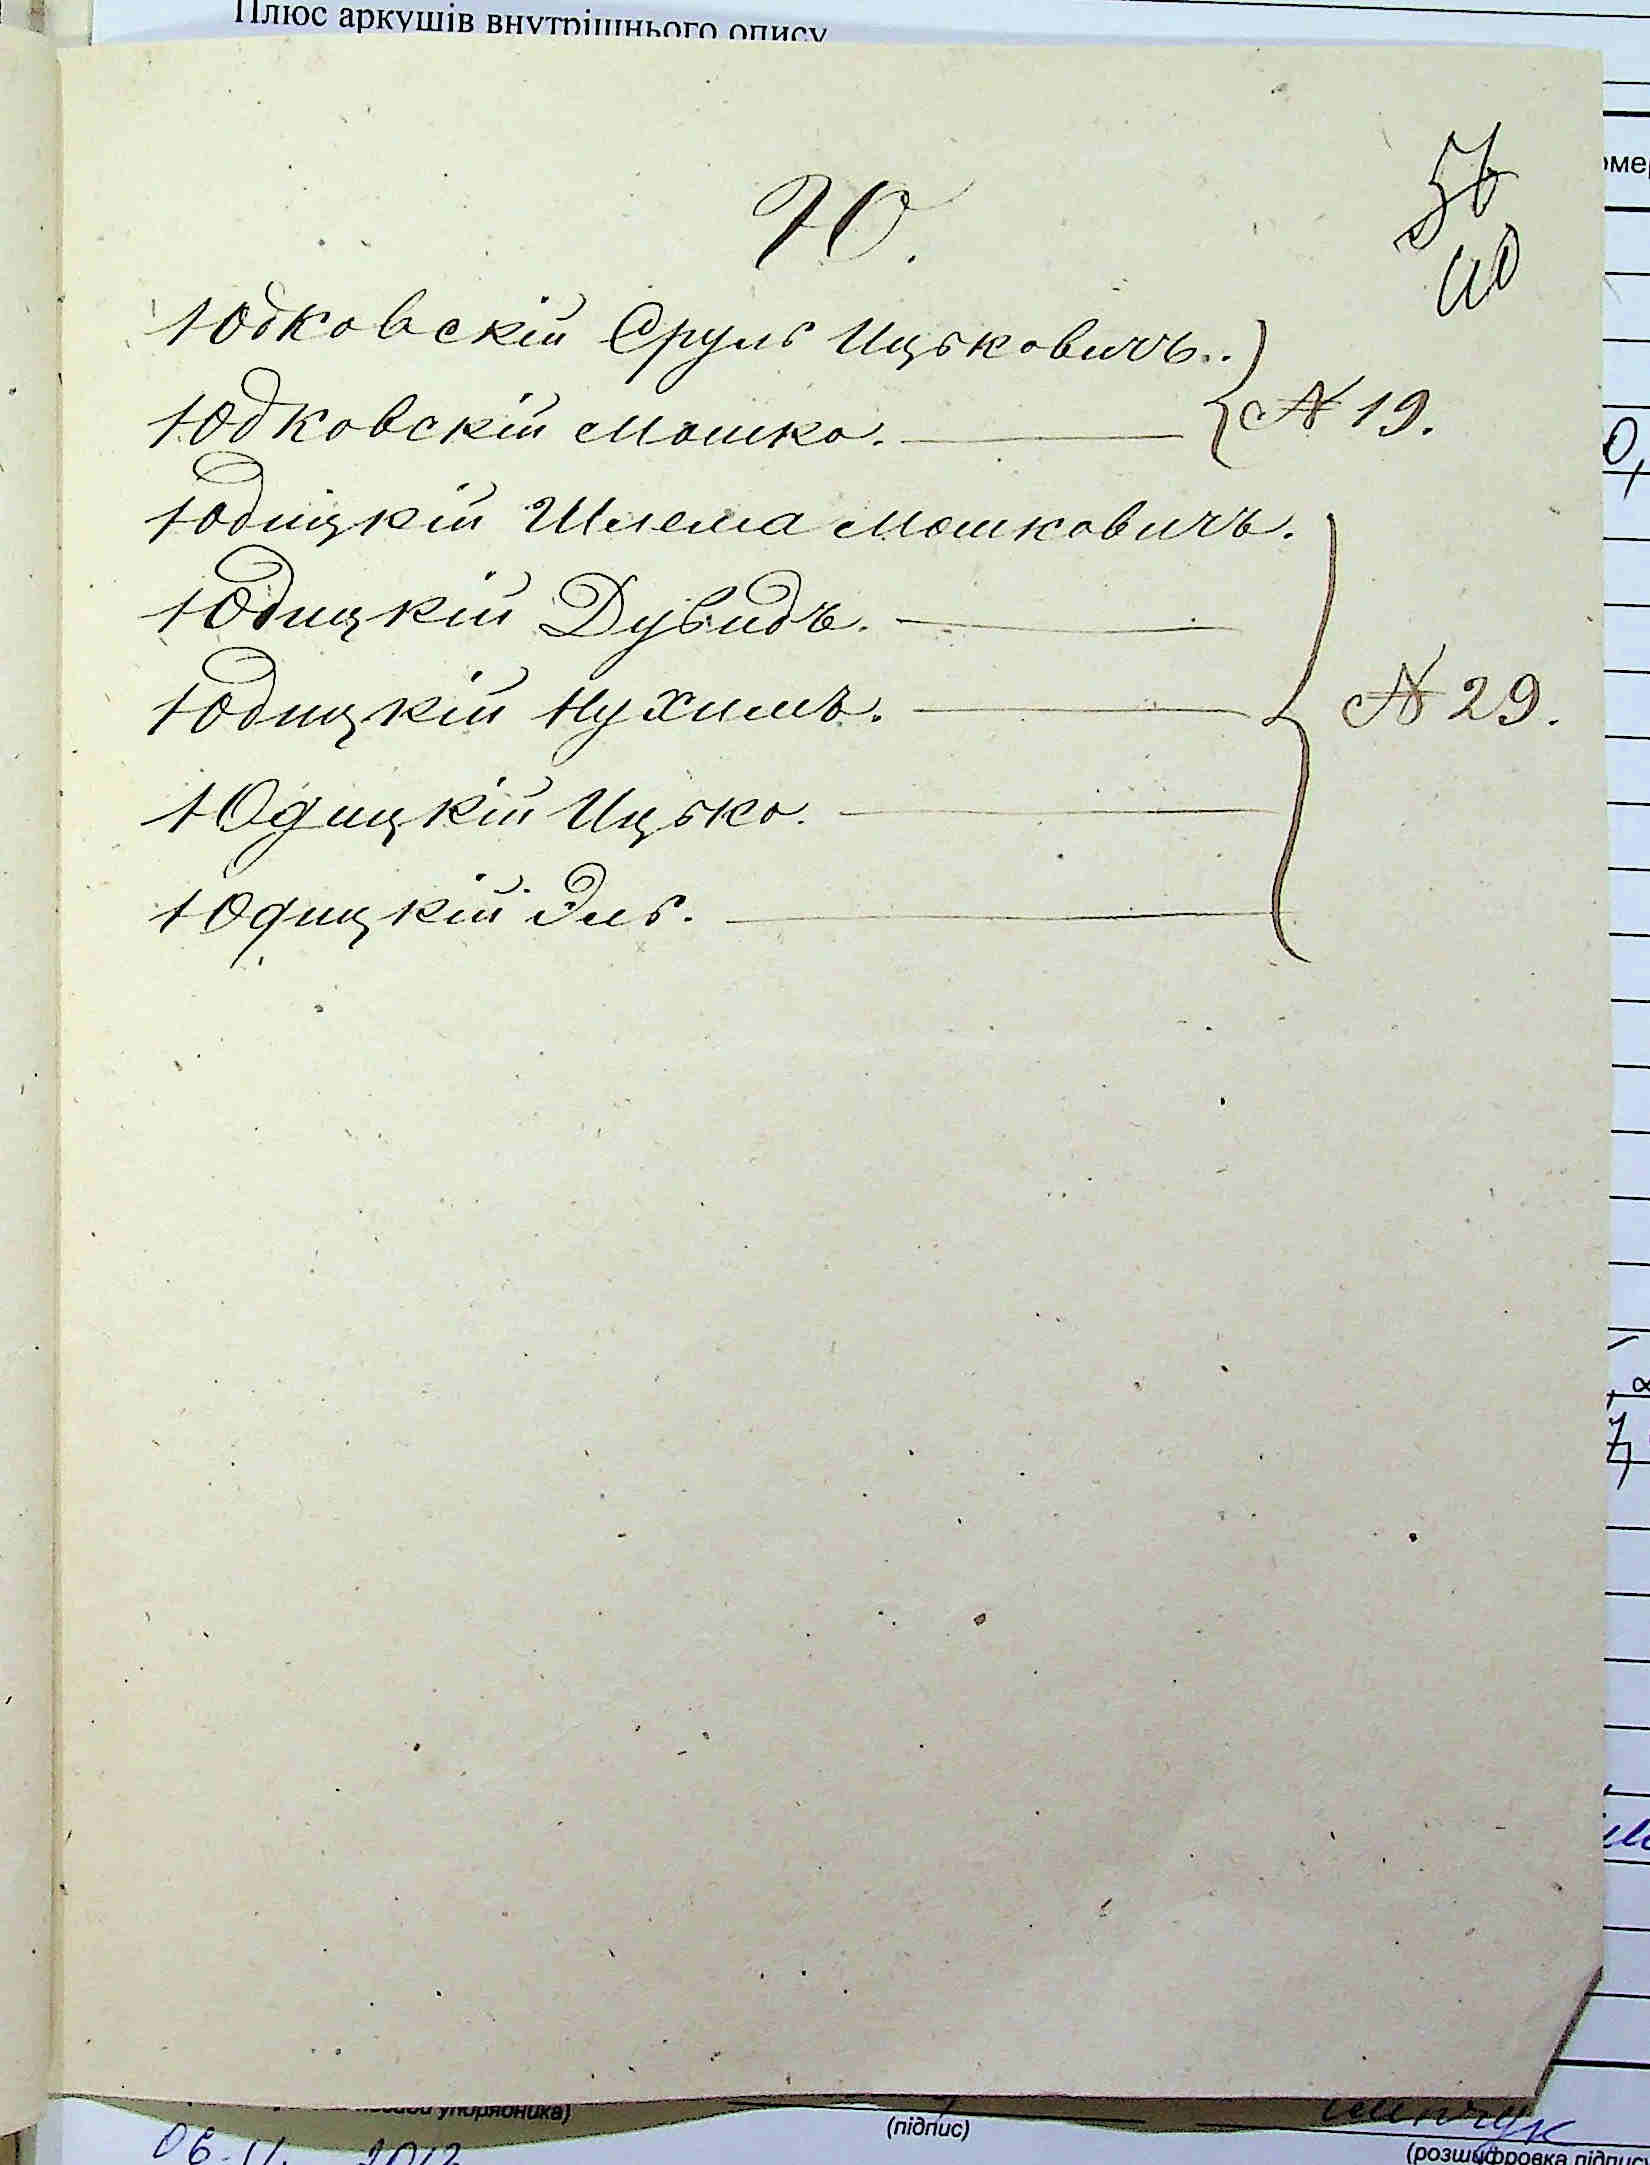 Плюс аркушів внутрішнього опису
56
Ю.
Юдковскій Сруль Ицьковичъ..
Юдковскій Мошко. № 19.
Юдицкій Шлема Мошковичъ.
Юдицкій Дувидъ.
Юдицкій Нухимъ. № 29.
Юдицкій Ицько.
Юдицкій Эль.
(підпис)
06.11. 2012
(розшифровка підпису